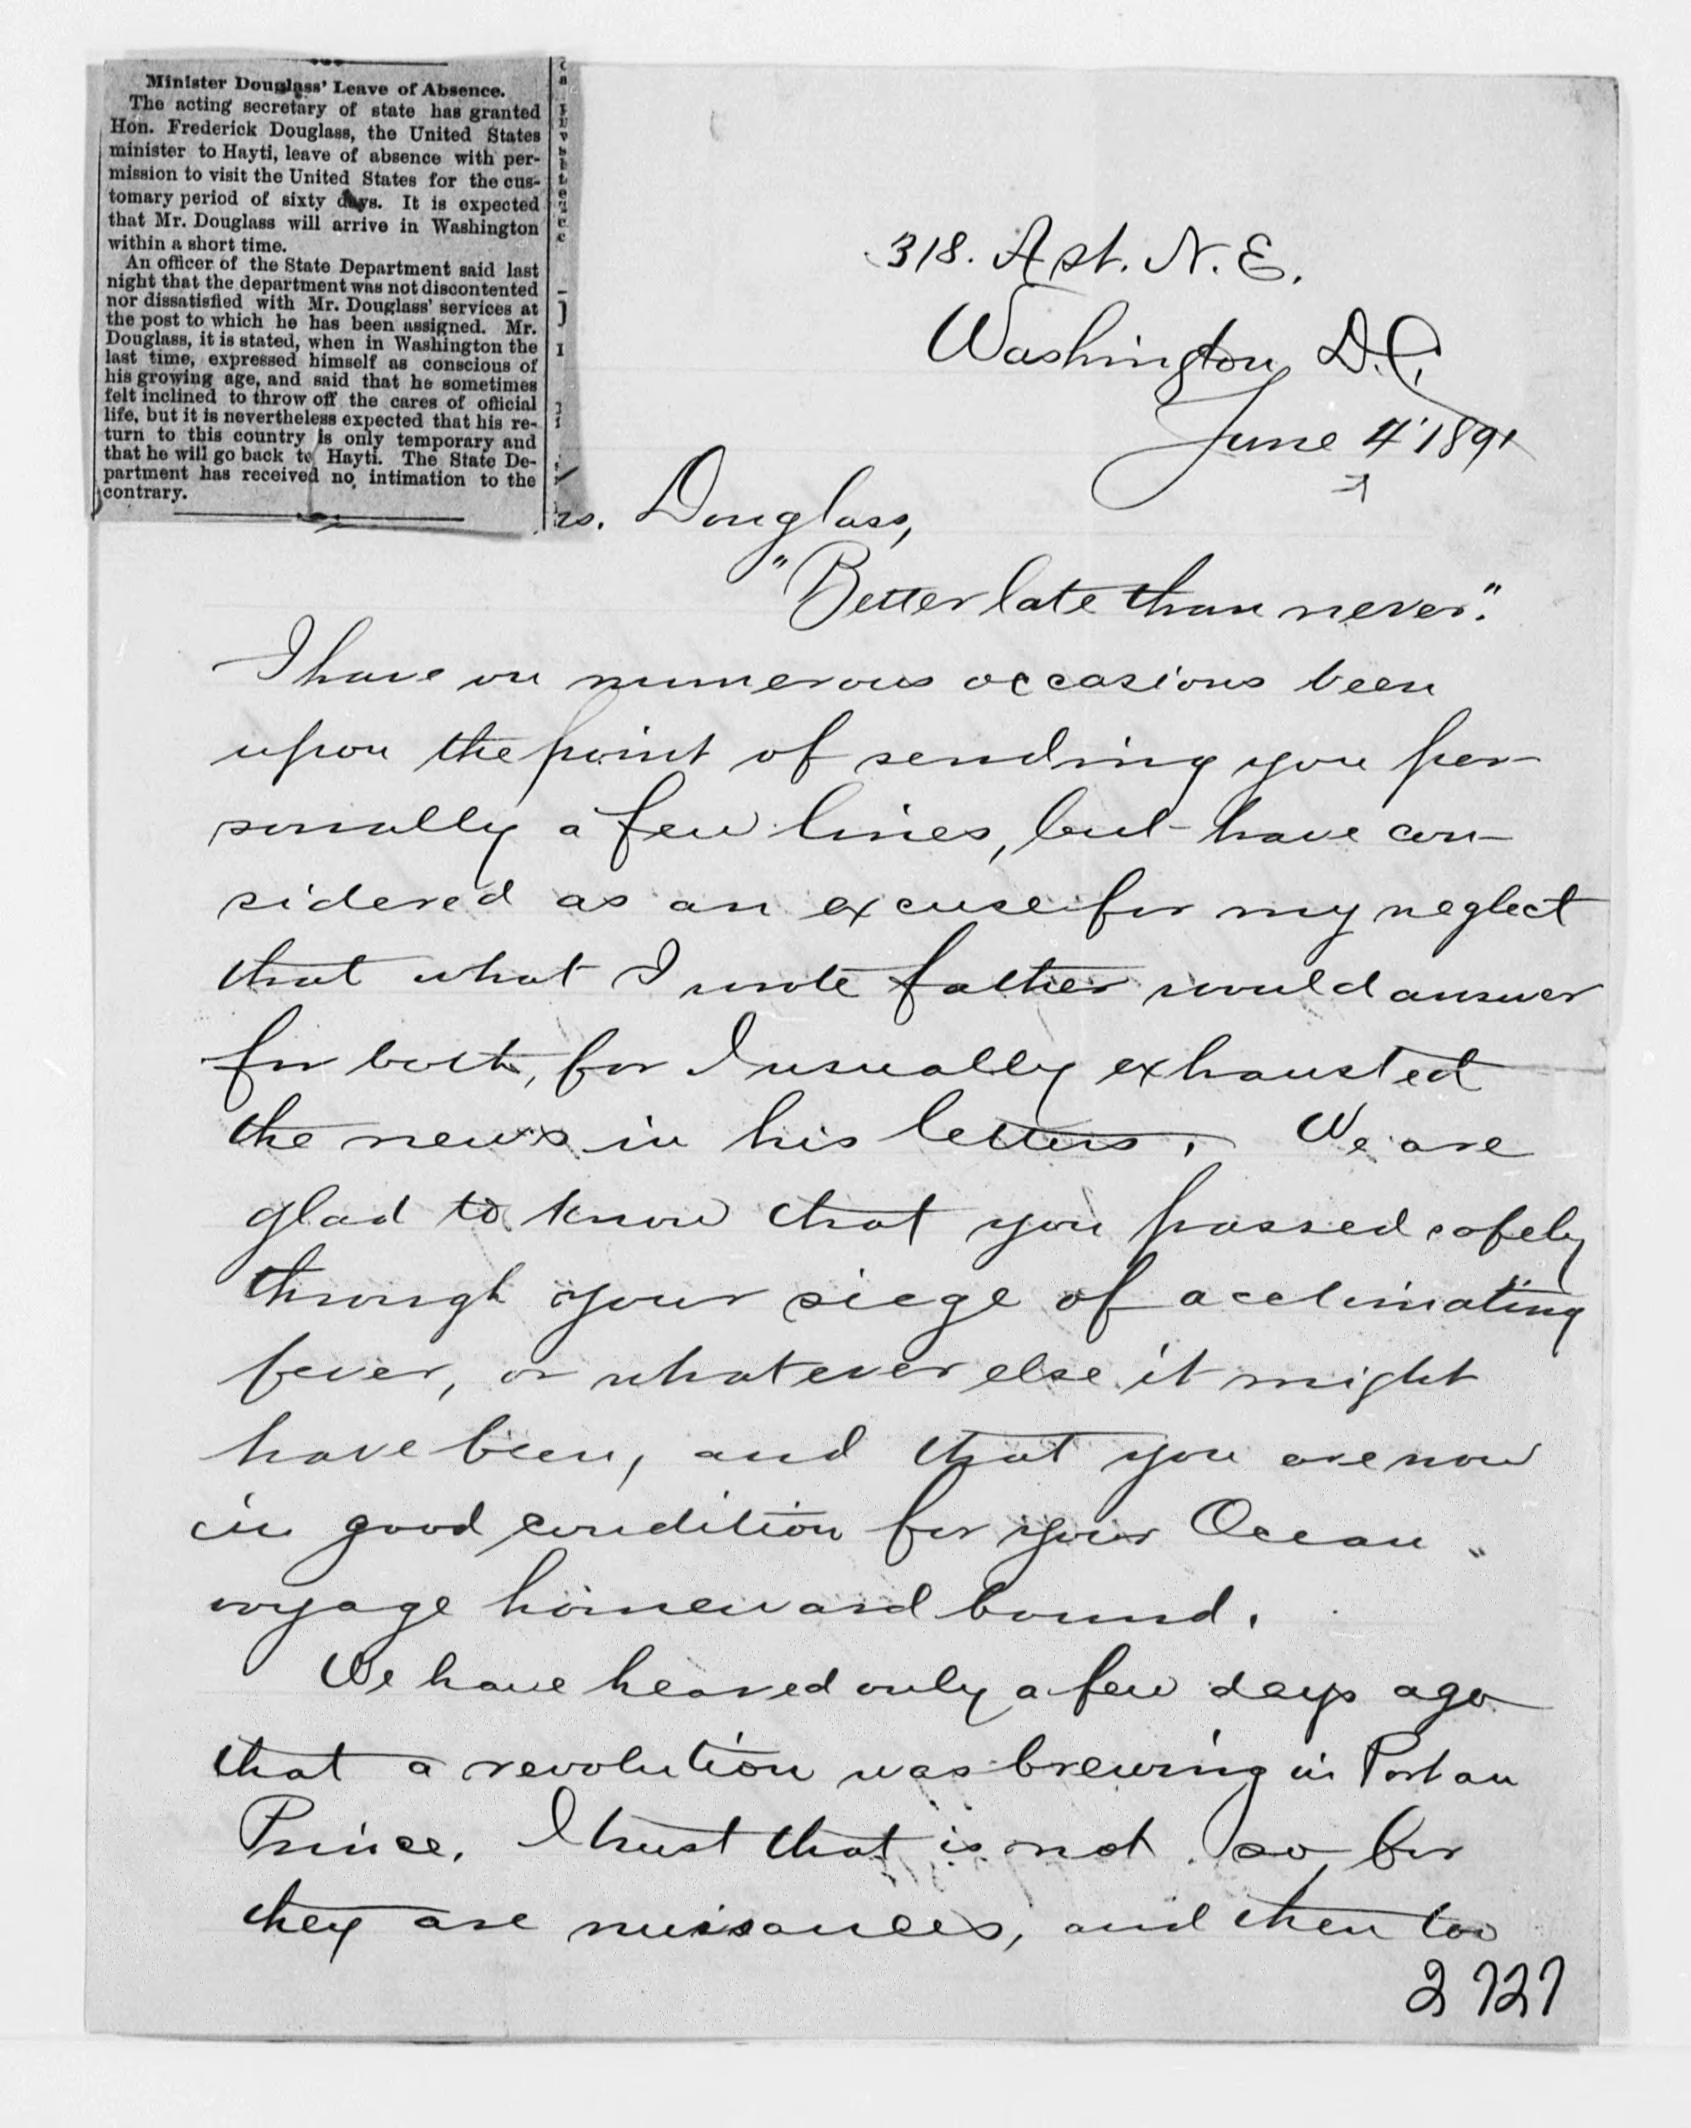 Minister Douglass' Leave of Absence.
The acting secretary of state has granted
Hon. Frederick Douglass, the United States
minister to Hayti, leave of absence with per-
mission to visit the United States for the cus-
tomary period of sixty days. It is expected
that Mr. Douglass will arrive in Washington
within a short time.
An officer of the State Department said last
night that the department was not discontented
nor dissatisfied with Mr. Douglass' services at
the post to which he has been assigned. Mr.
Douglass, it is stated, when in Washington the
last time, expressed himself as conscious of
his growing age, and said that he sometimes
felt inclined to throw off the cares of official
life, but it is nevertheless expected that his re-
turn to this country is only temporary and
that he will go back to Hayti. The State De-
partment has received no intimation to the
contrary.
318. A st. N. E.
Washington, D.C.
June 4 1891
rs. Douglass,
"Better late than never."
I have on numerous occasions been
upon the point of sending you per-
sonally a few lines, but have con-
sidered as an excuse for my neglect
that what I wrote father would answer
for both, for I usually exhausted
the news in his letters. We are
glad to know that you passed safely
through your siege of acclimating
fever, or whatever else it might
have been, and that you are now
in good condition for your Ocean
voyage homeward bound.
We have heared only a few days ago
that a revolution was brewing in Port au
Prince. I trust that is not so, for
they are nuisances, and then too
2727